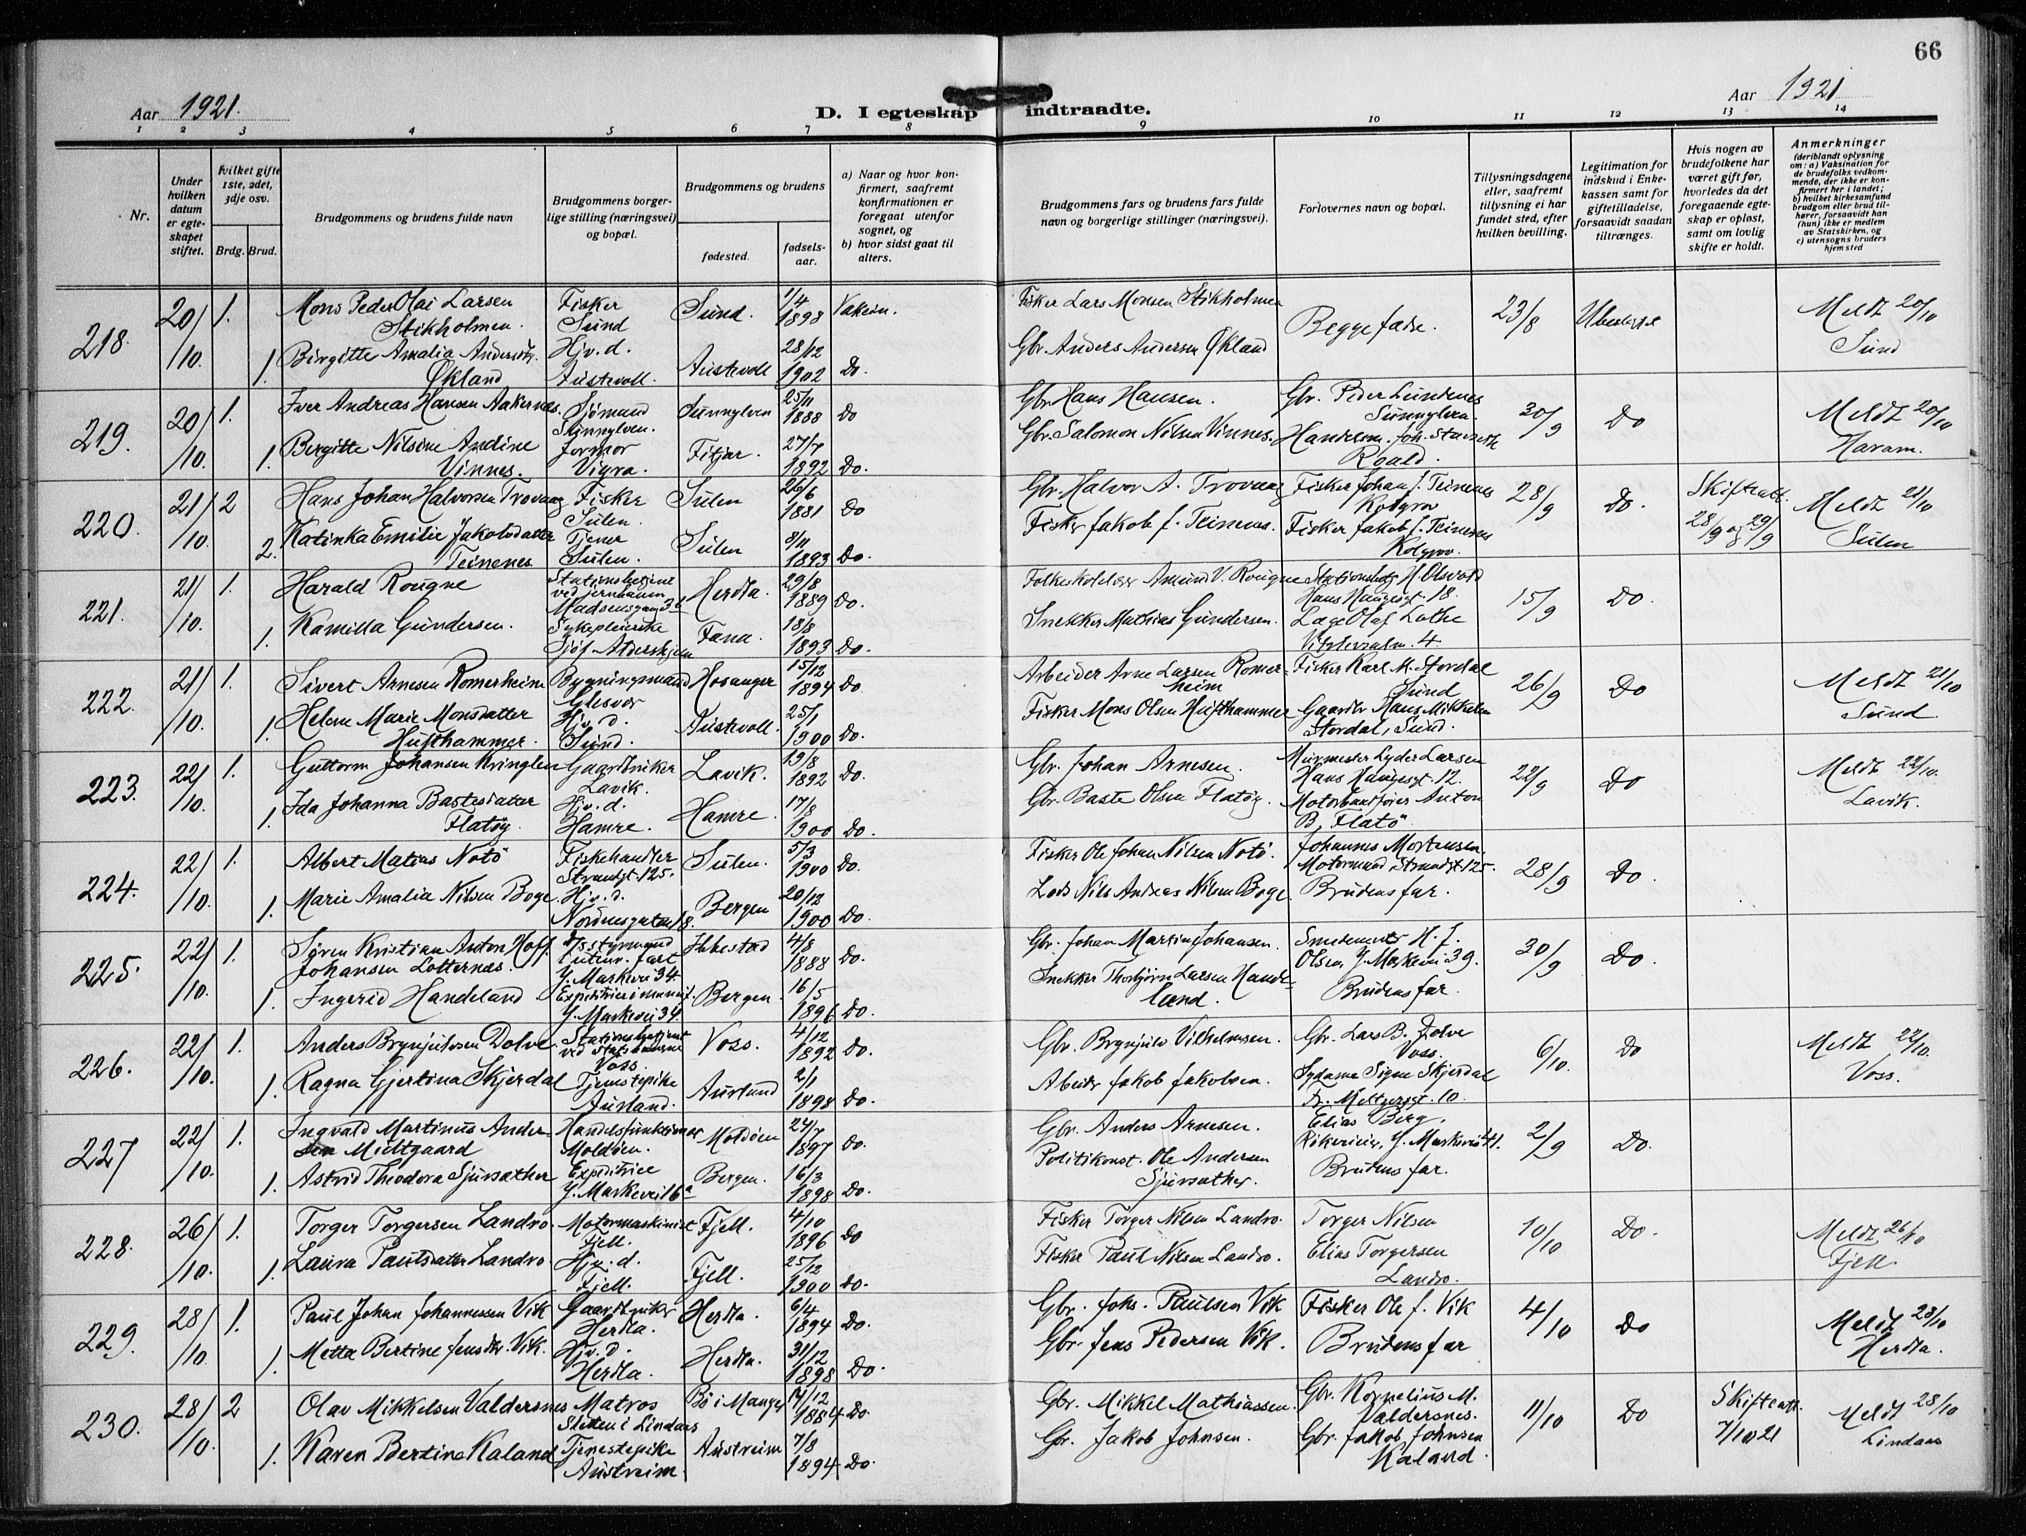 66
Aar 1921.
D. I egteskap indtraadte.
Aar 1921
1 2 3 4 5 6 7 8 9 10 11 12 13 14
Nr.
Under hvilken datum er egteskapet stiftet.
Hvilket gifte 1ste, 2det, 3dje osv.
Brdg. Brud.
Brudgommens og brudens fulde navn
Brudgommens borgerlige stilling (næringsvei) og bopæl.
Brudgommens og brudens
fødested.
fødselsaar.
a) Naar og hvor konfirmert, saafremt konfirmationen er foregaat utenfor sognet, og
b) hvor sidst gaat til alters.
Brudgommens fars og brudens fars fulde navn og borgerlige stillinger (næringsvei).
Forlovernes navn og bopæl.
Tillysningsdagene eller, saafremt tillysning ei har fundet sted, efter hvilken bevilling.
Legitimation for indskud i Enkekassen samt for giftetilladelse, forsaavidt saadan tiltrænges.
Hvis nogen av brudefolkene har været gift før, hvorledes da det foregaaende egteskap er opløst, samt om lovlig skifte er holdt.
Anmerkninger
(deriblandt oplysning om: a) Vaksination for de brudefolks vedkommende, der ikke er konfirmert her i landet; b) hvilket kirkesamfund brudgom eller brud tilhører, forsaavidt han (hun) ikke er medlem av Statskirken, og c) utensogns bruders hjemsted
218. 20/10. 1. Mons Peder Olai Larsen Stikholmen. Fisker Sund Sund. 1/4 1898 Fisker Lars Monsen Stikholmen Begge fædre. 23/8 Meldt 20/10 Sund
1. Birgitte Amalia Andersdtr. Økland Hjv. d. Austevoll. Austevoll 28/12 1902 Do. Gbr. Anders Andersen Økland
219. 20/10. 1. Iver Andreas Hansen Aakernes. Sjømand Sunnylven. Sunnylven 25/11 1888 Do Gbr. Hans Hansen. Gbr. Peder Lundenes Sunnylven. 30/9 Do Meldt 20/10 Haram.
1. Bergitte Nilsine Andine Vinnes. Jormor Vigra. Fitjar. 27/7 1892 Do. Gbr. Salomon Nilsen Vinnes. Handelsm. Joh. Roald.
220. 21/10. 2 Hans Johan Halvorsen Trovaag Fisker Sulen. Sulen 26/6 1881 Do Gbr. Halvor A. Trovaag Fisker Johan J. Teinenes Kolgrov 28/9 Do. Skifteatt. 28/9 og 29/9 Meldt 21/10 Sulen
2. Katinka Emilie Jakobsdatter Teinenes Tjener Sulen. Sulen 8/11 1893 Do. Fisker Jakob J. Teinenes. Fisker Jakob J. Teinenes Kolgrov.
221. 21/10. 1. Harald Rougne Stationsbetjene ved jernbanen Madsensgang 3a Herdla. 29/8 1889 Do. Amund V. Rougne Hans Haugesgt. 18. 15/9 Do.
1. Kamilla Gundersen. Sykepleierske Fana. 18/8 1893 Do. Snekker Mathias Gundersen. Læge Olaf Lothe 4
222. 21/10. 1. Sivert Arnesen Romerheim Bygningsmand Glesvær Hosanger 15/12 1894 Do Arbeider Arne Larsen Romerheim Fisker Karl M. Stordal Sund 26/9 Do Meldt 21/10 Sund
1. Helene Marie Monsdatter Hufthammer. Hjv. d. Sund. Austevoll. 25/1 1900 Do. Fisker Mons Olsen Hufthammer Gaardbr. Hans Mikkelsen Stordal, Sund.
223. 22/10. 1. Guttorm Johansen Kringlen Gaardbruker Lavik. Lavik. 19/8 1892 Do. Gbr. Johan Arnesen. Murmester Lyder Larsen Hans Haugesgt. 12. 22/9 Do Meldt 22/10. Lavik.
1. Ida Johanna Bastesdatter Flatøy Hjv. d. Hamre. Hamre. 17/8 1900 Do. Gbr. Baste Olsen Flatøy. Motorbaatfører Anton B. Flatø
224. 22/10. 1. Albert Matias Notø Fiskehandler Strandgt. 125. Sulen. 5/3 1900 Do Fisker Ole Johan Nilsen Notø. Johannes Mortensen. Motormand Strandgt. 125. 28/9 Do.
1. Marie Amalia Nilsen Boge. Hjv. d. Nordnesgaten 18. Bergen 20/12 1900 Do. Lods Nils Andreas Nilsen Boge Brudens far.
225. 22/10. 1. Søren Kristian Anton Hoff Johansen Lotternæs. styrmand i utenr. fart Y. Markevei 34. Ibbestad 4/8 1888 Do. Gbr. Johan Martin Johansen. Smedemester H. J. Olsen, Y. Markevei 39. 30/9 Do.
1. Ingerid Handeland Y. Markevei 34. Bergen. 16/5 1896 Do. Snekker Thorbjørn Larsen Handeland. Brudens far.
226. 22/10. 1. Anders Brynjulvsen Dolve. Stationsbetjent ved Statsbanerne Voss. Voss. 4/12 1892 Do. Gbr. Brynjulv Vilhelmsen. Gbr. Lars B. Dolve Voss. 6/10. Do Meldt 22/10. Voss.
1. Ragna Gjertina Skjerdal Tjenestepike Aurland. Aurland 2/1 1898 Do. Arbeider Jakob Jakobsen. Sydame Signe Skjerdal Fr. Meltzersgt. 10.
227 22/10. 1. Ingvald Martinus Andersen Midtgaard Handelsfunktionær Moldøen. Moldøen 24/7 1897 Do. Gbr. Anders Arnesen. Elias Berg, Y. Markevei 41. 2/9 Do.
1. Astrid Theodora Sjursæther Expeditrice Y. Markevei 16a Bergen. 16/3 1898 Do. Politikonst. Ole Andersen Sjursæther. Brudens far.
228. 26/10. 1. Torger Torgersen Landro. Motormaskinist Fjell. Fjell. 4/10 1896 Do Fisker Torger Nilsen Landro. Torger Nilsen 10/10 Do. Meldt 26/10 Fjell.
1. Laura Paulsdatter Landro Hjv. d. Fjell. Fjell. 25/12 1900 Do. Fisker Paul Nilsen Landro. Elias Torgersen Landro.
229. 28/10. 1. Paul Johan Johannessen Vik Gaardbruker Herdla. Herdla. 6/4 1894 Do. Gbr. Johs. Paulsen Vik Fisker Ole J. Vik 4/10 Do Meldt 28/10 Herdla.
1. Metta Bertine Jensdtr. Vik. Hjv. d. Herdla Herdla. 31/12 1898 Do. Gbr. Jens Pedersen Vik. Brudens far
230. 28/10. 2 Olav Mikkelsen Valdersnes Matros Sletten i Lindaas Bø i Manger 17/12 1884 Do. Gbr. Mikkel Mathiassen. Gbr. Kornelius M. Valdersnes. 11/10 Do Skifteatt. 7/10 21 Meldt 28/10 Lindaas
1. Karen Bertina Kaland Tjenestepike Austreim. Austreim 7/8 1894 Do. Gbr. Jakob Johnsen. Gbr. Jakob Johnsen Kaland.